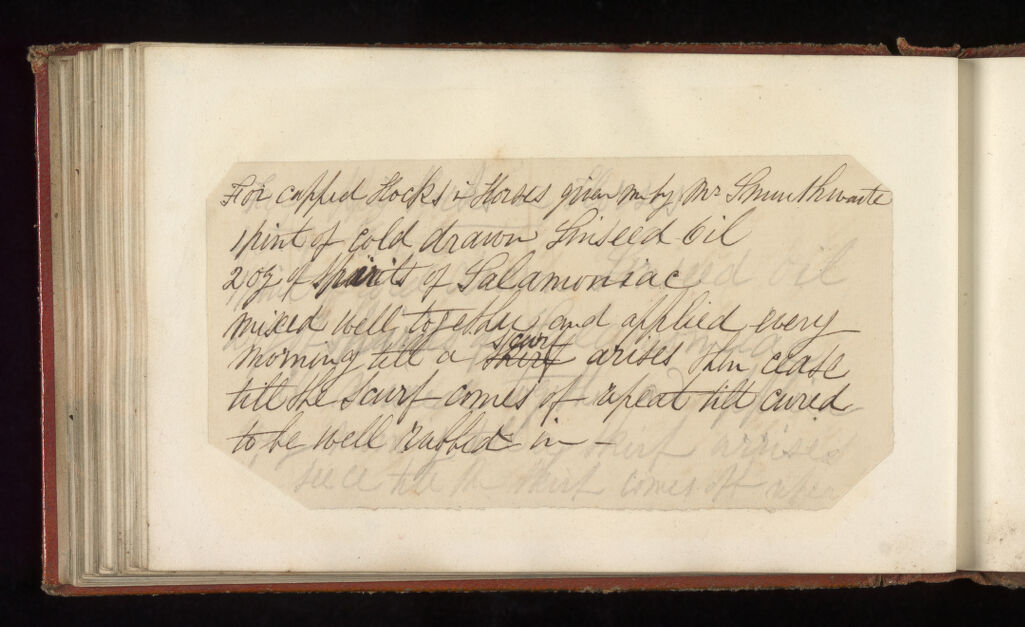 For capped Hocks in Horses given me by Mr Smurthwaite
1 pint of cold drawn Linseed Oil
2 oz of Spirits of Salamoniac
mixed well together and applied every
morning till a scurf arises then cease
till the scurf comes of repeat till cured
to be well rubbed in –